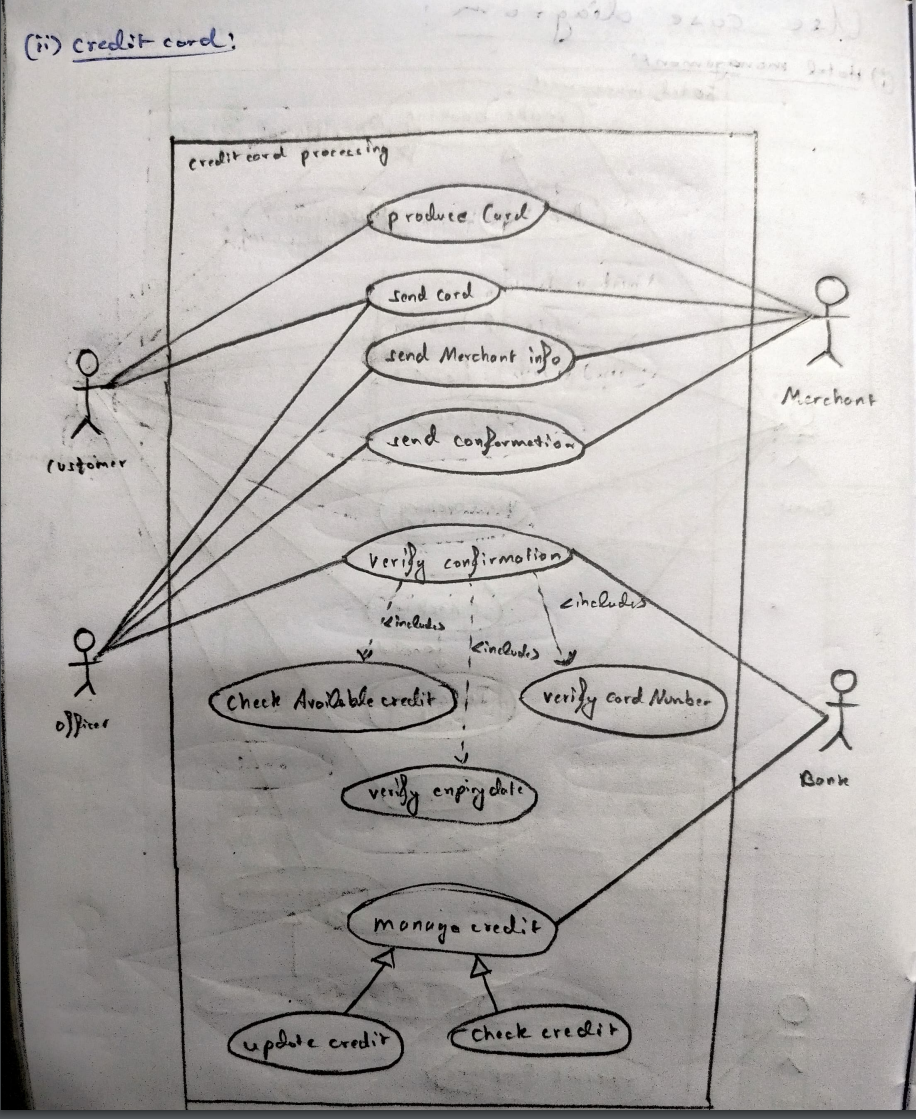 (ii) credit card:
credit card processing
produce Card
send card
send Merchant info
Merchant
send conformation
customer
verify confirmation
<includes
<includes
<includes
officer
check Available credit
verify card Number
Bank
verify expiry date
manage credit
update credit
check credit